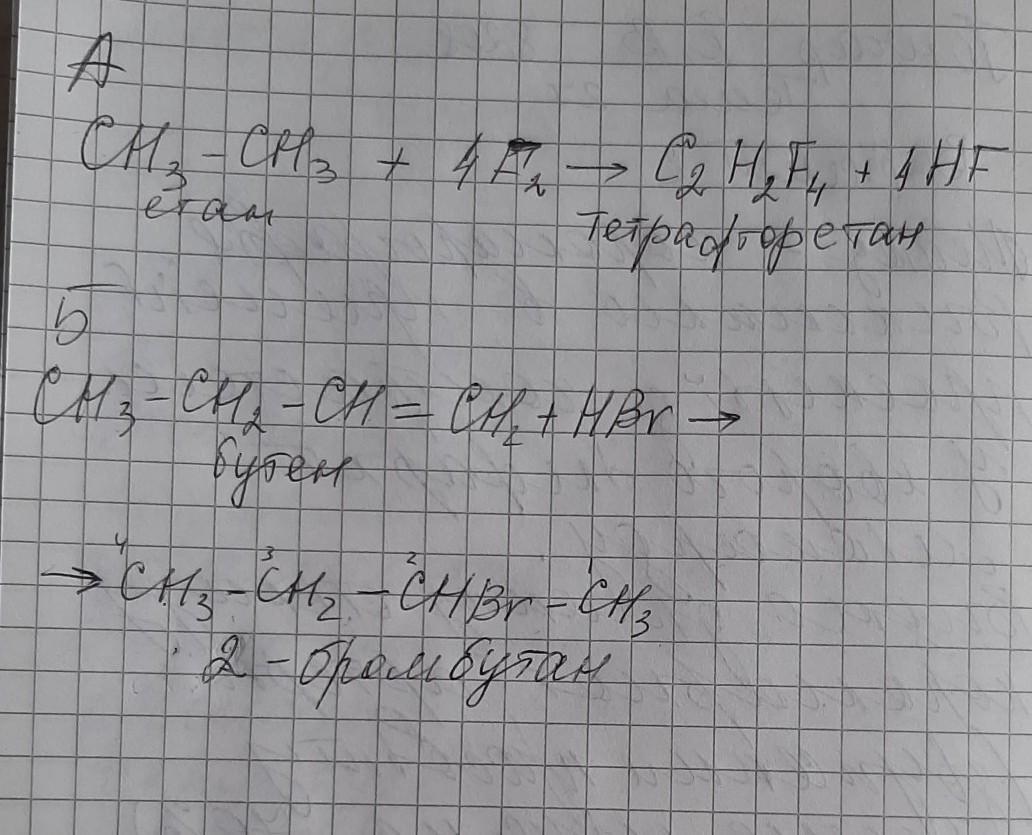 А
CH₃ – CH₃ + 4F₂ → C₂H₂F₄ + 4HF
етан
тетрафторетан
Б
CH₃ – CH₂ – CH = CH₂ + HBr →
бутен
→ ⁴CH₃ – ³CH₂ – ²CHBr – ¹CH₃
2 – бромбутан